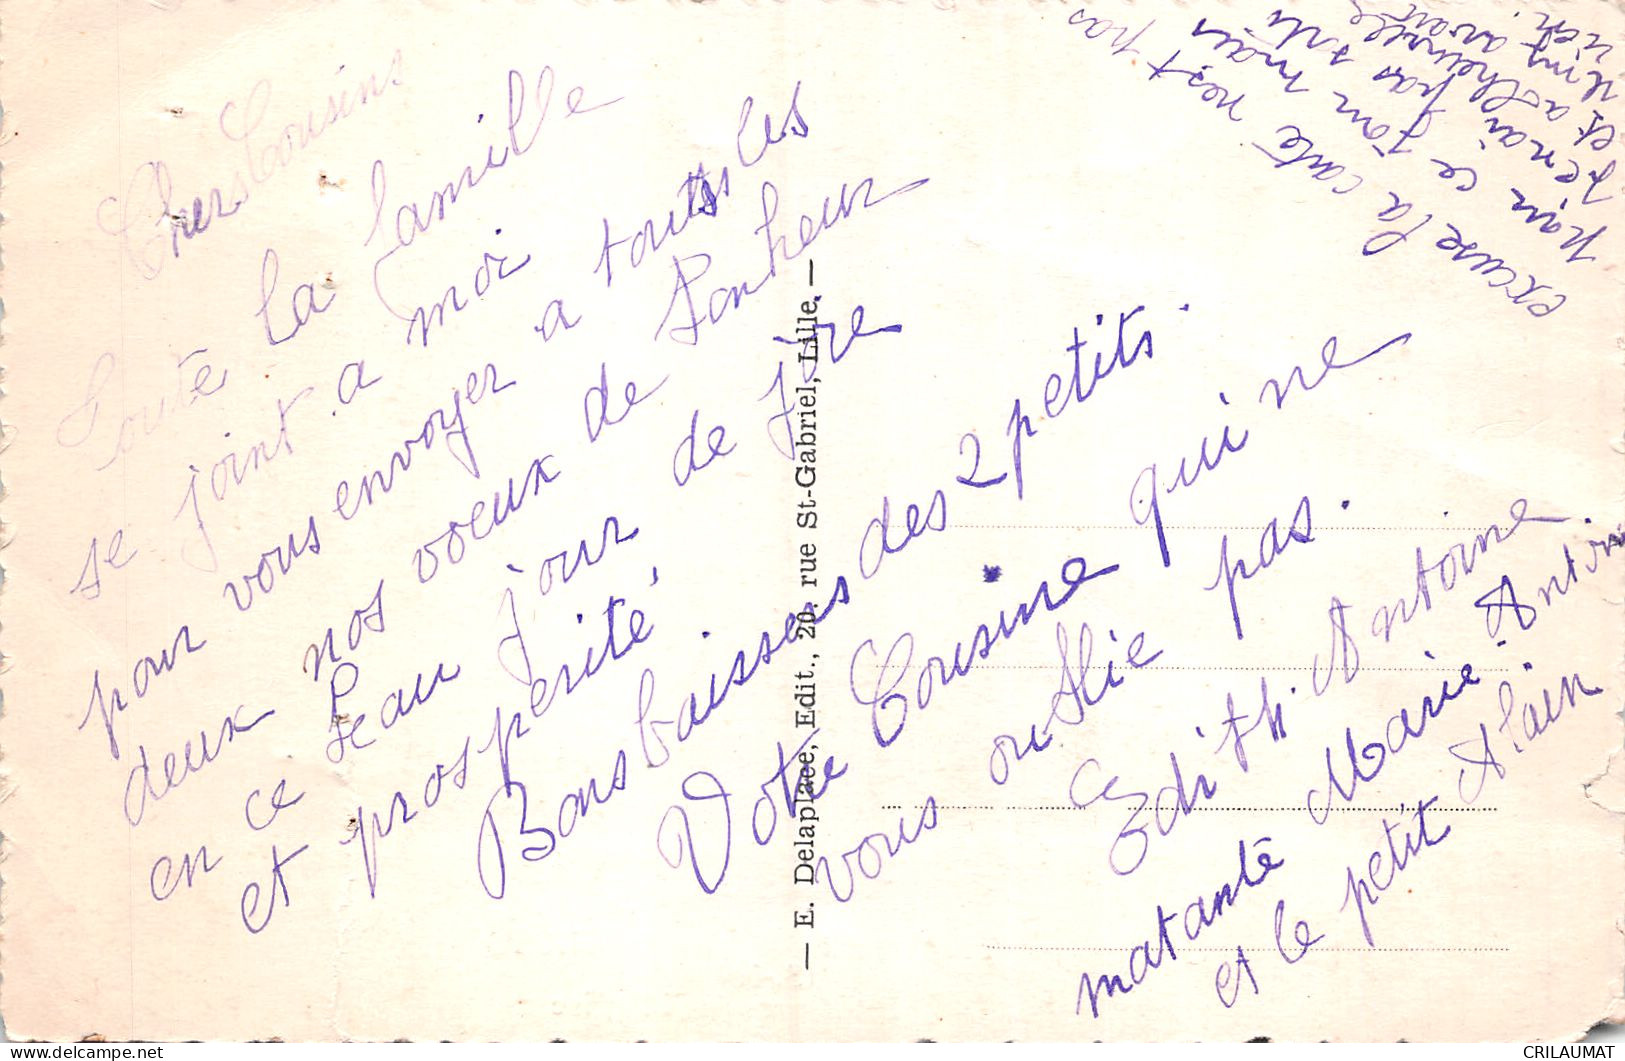 Chers Cousins
Toute la famille
se joint a moi
pour vous envoyer a touts les
deux nos voeux de bonheur
en ce beau jour de fête
et prosperité.
Bons baissers des 2 petits.
Votre Cousine qui ne
vous oublie pas.
Edith. Antoine
matante Marie. Antoine
et le petit Alain
excuse la carte nest pas
pour ce jour mais
Jenai pas sorti
et a lheure
rien.
— E. Delaplace, Edit., 20, rue St-Gabriel, Lille. —
CRILAUMAT